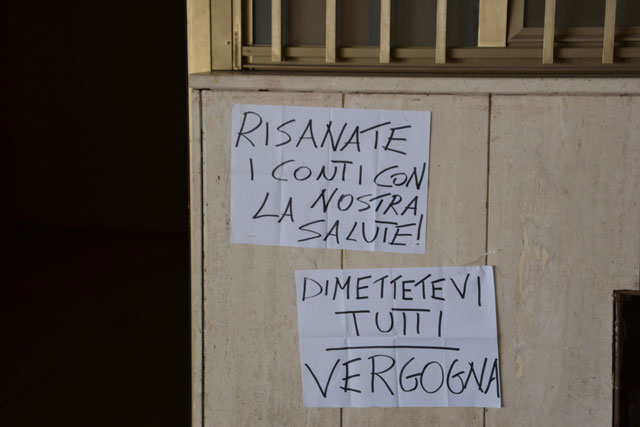 RISANATE
I CONTI CON
LA NOSTRA
SALUTE!
DIMETTETEVI
TUTTI
VERGOGNA